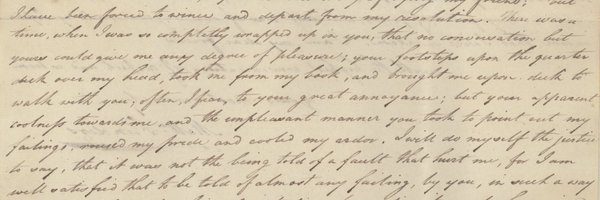 my friend; but
I have been forced to wince and depart from my resolution. There was a
time, when I was so completely wrapped up in you, that no conversation but
yours could give me any degree of pleasure; your footsteps upon the quarter
deck over my head, took me from my book, and brought me upon deck to
walk with you; often, I fear, to your great annoyance: but your apparent
coolness towards me, and the unpleasant manner you took to point out my
failings, roused my pride and cooled my ardor. I will do myself the justice
to say, that it was not the being told of a fault that hurt me, for I am
well satisfied that to be told of almost any failing, by you, in such a way